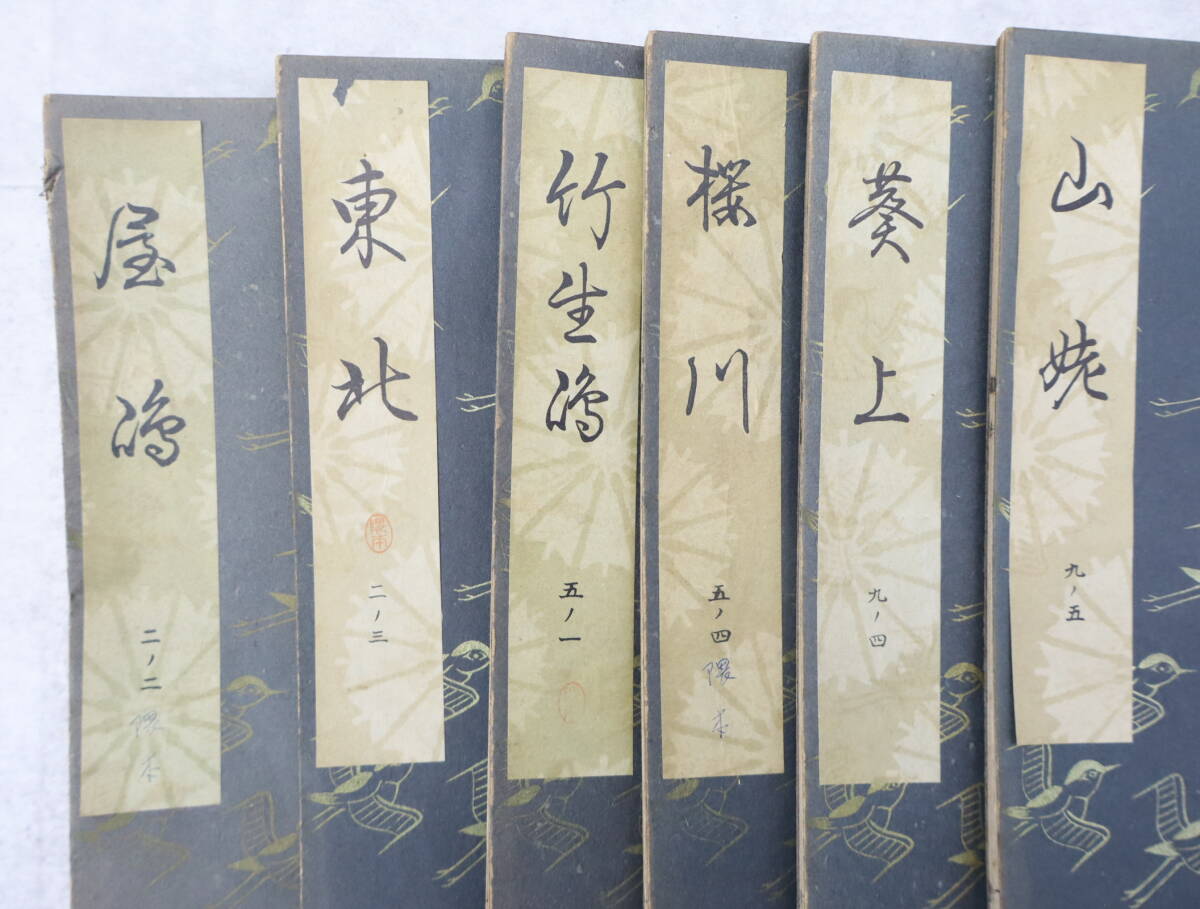 屋嶋
二ノ二
隈本
東北
隈本
二ノ三
竹生嶋
五ノ一
櫻川
五ノ四
隈本
葵上
九ノ四
山姥
九ノ五